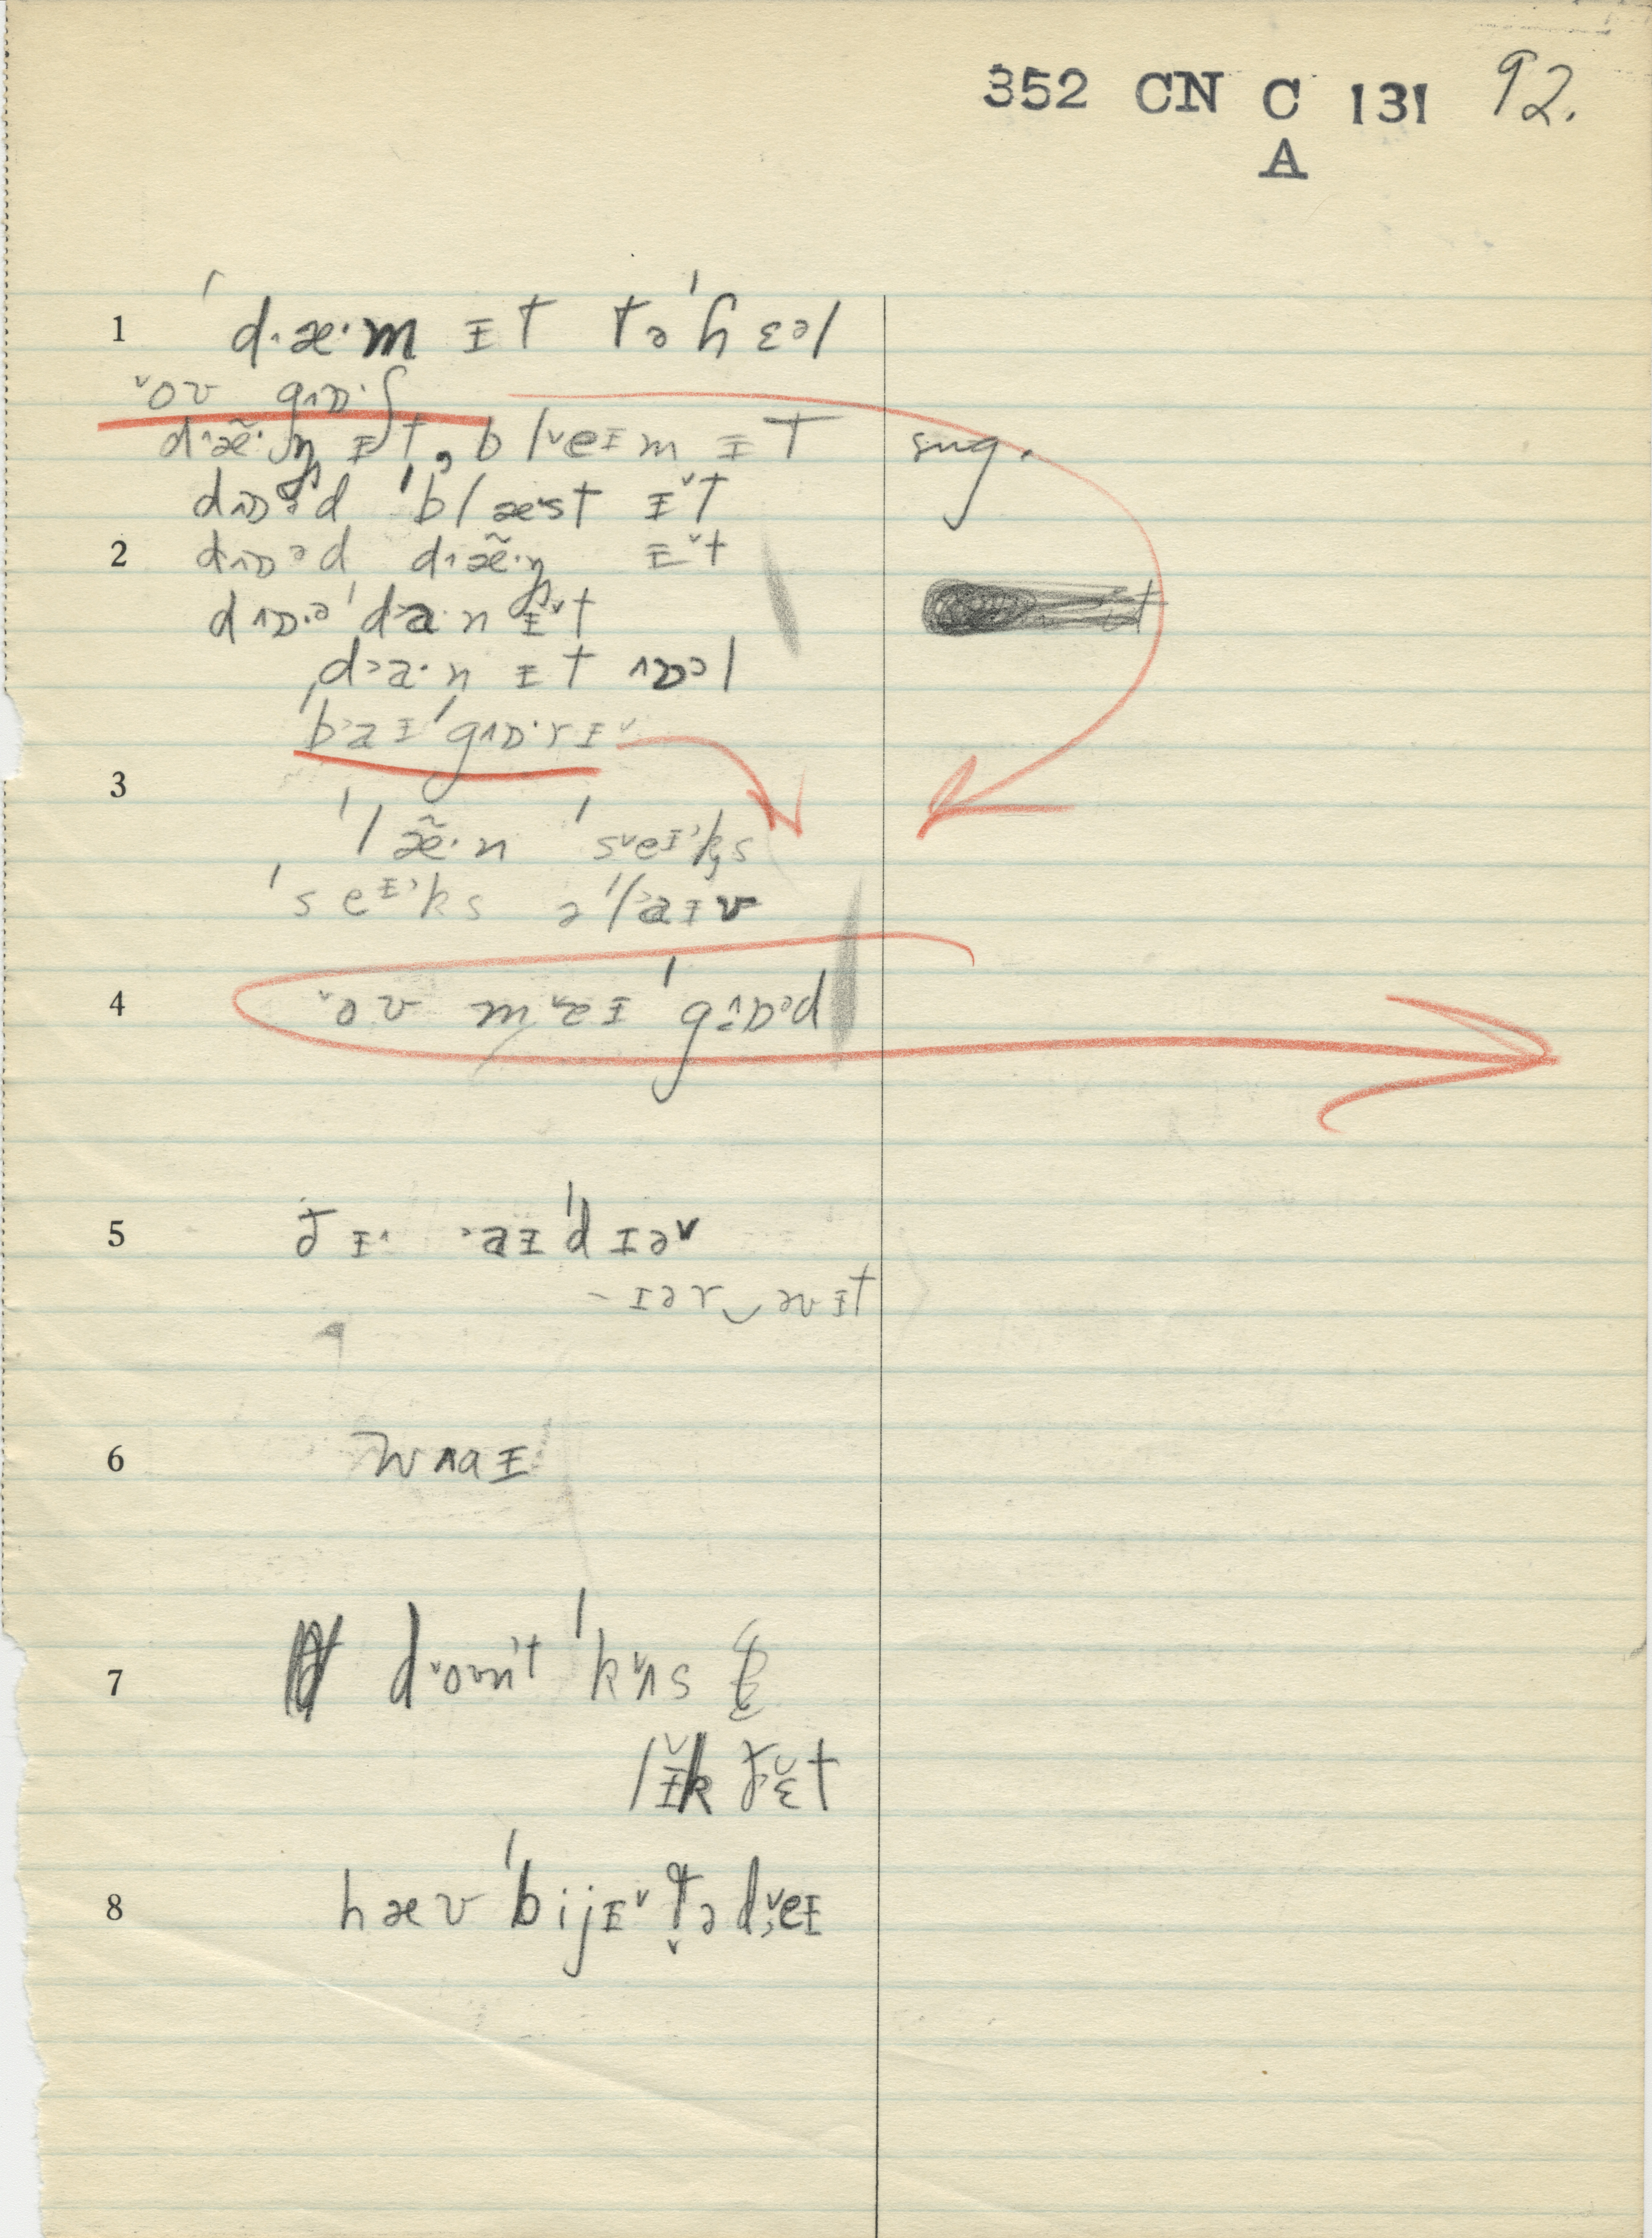 352 CN C 131 92.
A
1 ˈd·æ·m ɪt təˈhɛəl
ˇoʊ gᴧɒ·ʃ
d·æ̃·ŋ ɪt, blˇeɪm ɪt sug.
dᴧɒəd ˈblæst ɪˇt
2 dᴧɒəd d·æ̃·ŋ ɪˇt
dᴧɒ·əˈda·n ɪˇt
d˃a·n ɪt ᴧɒəl
ˈb˃aɪˈgᴧɒ·rɪˇ
3
ˈlæ̃·n ˈsˇeɪ˒ks
ˈseɪ˒ks əˈl˃aɪv
4 ˇoʊ mˇeɪ ˈgᴧɒəd
5 ðɪ˄ ˃aɪˈdɪəˇ
-ɪər‿əvɪt
6 wᴧaɪ
7 dˇoʊnt ˈkˇʌs
lɪ̆k ðɛ̆t
8 hæv ˈbijɪˇtədˇeɪ